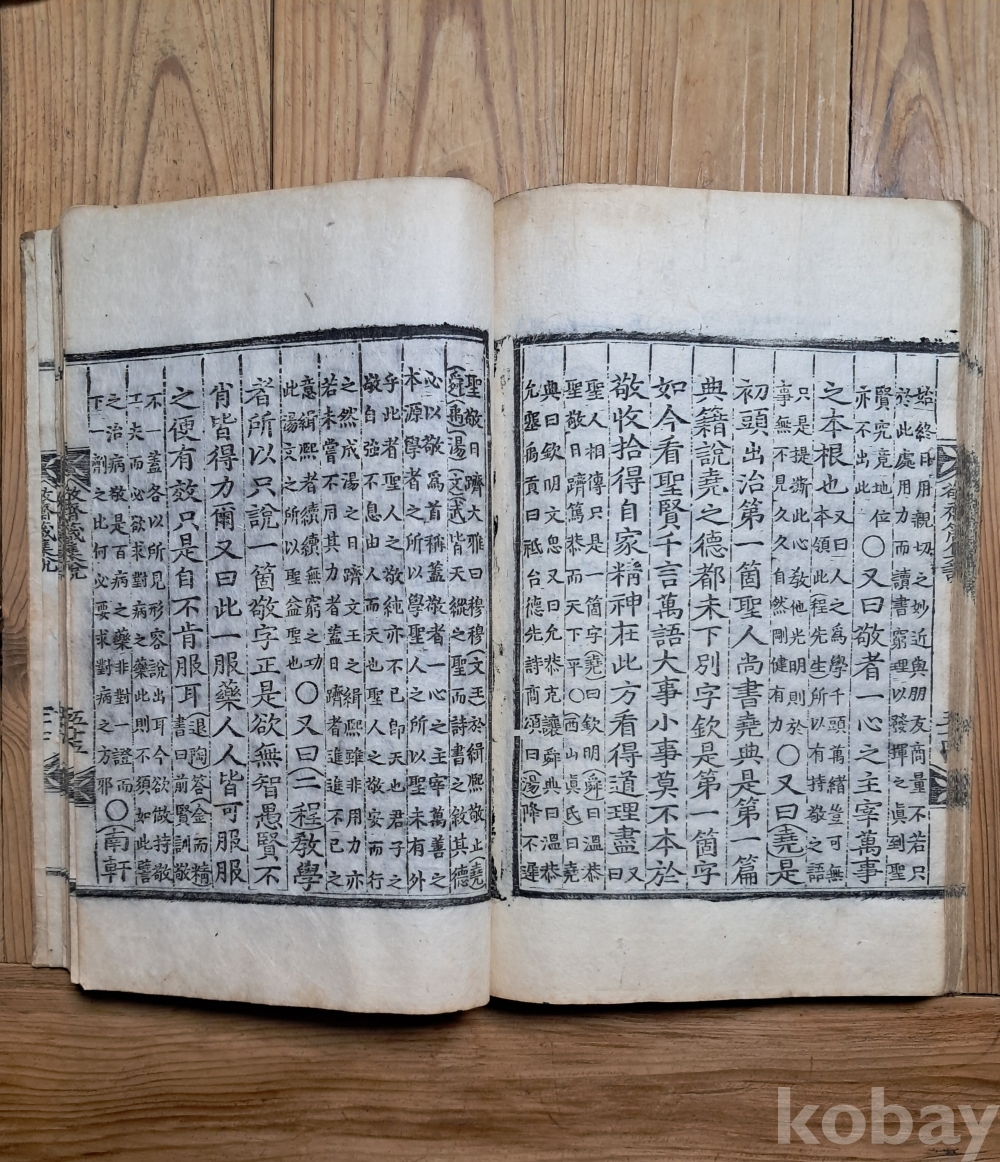 始終日用親切之妙近與朋友商量不若只
於此處用力而讀書窮理以發揮之眞到聖
賢究竟地位
亦不出此
○又曰敬者一心之主宰萬事
之本根也
又曰人之爲學千頭萬緒豈可無
本領此程先生所以有持敬之語
只是提撕此心敎他光明則於
事無不見久久自然剛健有力
○又曰堯是
初頭出治第一箇聖人尚書堯典是第一篇
典籍說堯之德都未下別字欽是第一箇字
如今看聖賢千言萬語大事小事莫不本於
敬收拾得自家精神在此方看得道理盡又曰
聖人相傳只是一箇字堯曰欽明舜曰溫恭
聖敬日躋篤恭而天下平○西山眞氏曰堯
典曰欽明文思又曰允恭克讓舜典曰溫恭
允塞禹貢曰祗台德先詩商頌曰湯降不遲
聖敬日躋大雅曰穆穆文王於緝熙敬止堯
舜禹湯文武皆天縱之聖而詩書之敘其德
必以敬爲首稱蓋敬者一心之主宰萬善之
本源學者之所以學聖人之所以聖未有外
乎此者聖人之敬純亦不已卽天也君子之
敬自強不息由人而天也聖人之敬安而行
之然成湯之日躋文王之緝熙雖非用力亦
若未嘗不用其力者蓋日躋者進進不已之
意緝熙者續續無窮之功
此湯文之所以聖益聖也
○又曰二程敎學
者所以只說一箇敬字正是欲無智愚賢不
肖皆得力爾又曰此一服藥人人皆可服服
之便有效只是自不肯服耳
退陶答金而精
書曰前賢訓敬
不一蓋各以所見形容說出耳今欲做持敬
工夫而必欲求對病之藥此則不須如此譬
之治病敬是百病之藥非對一證而
下一劑之比何必要求對病之方邪
○南軒
敬齋箴集說
五十五
敬齋箴集說
kobay